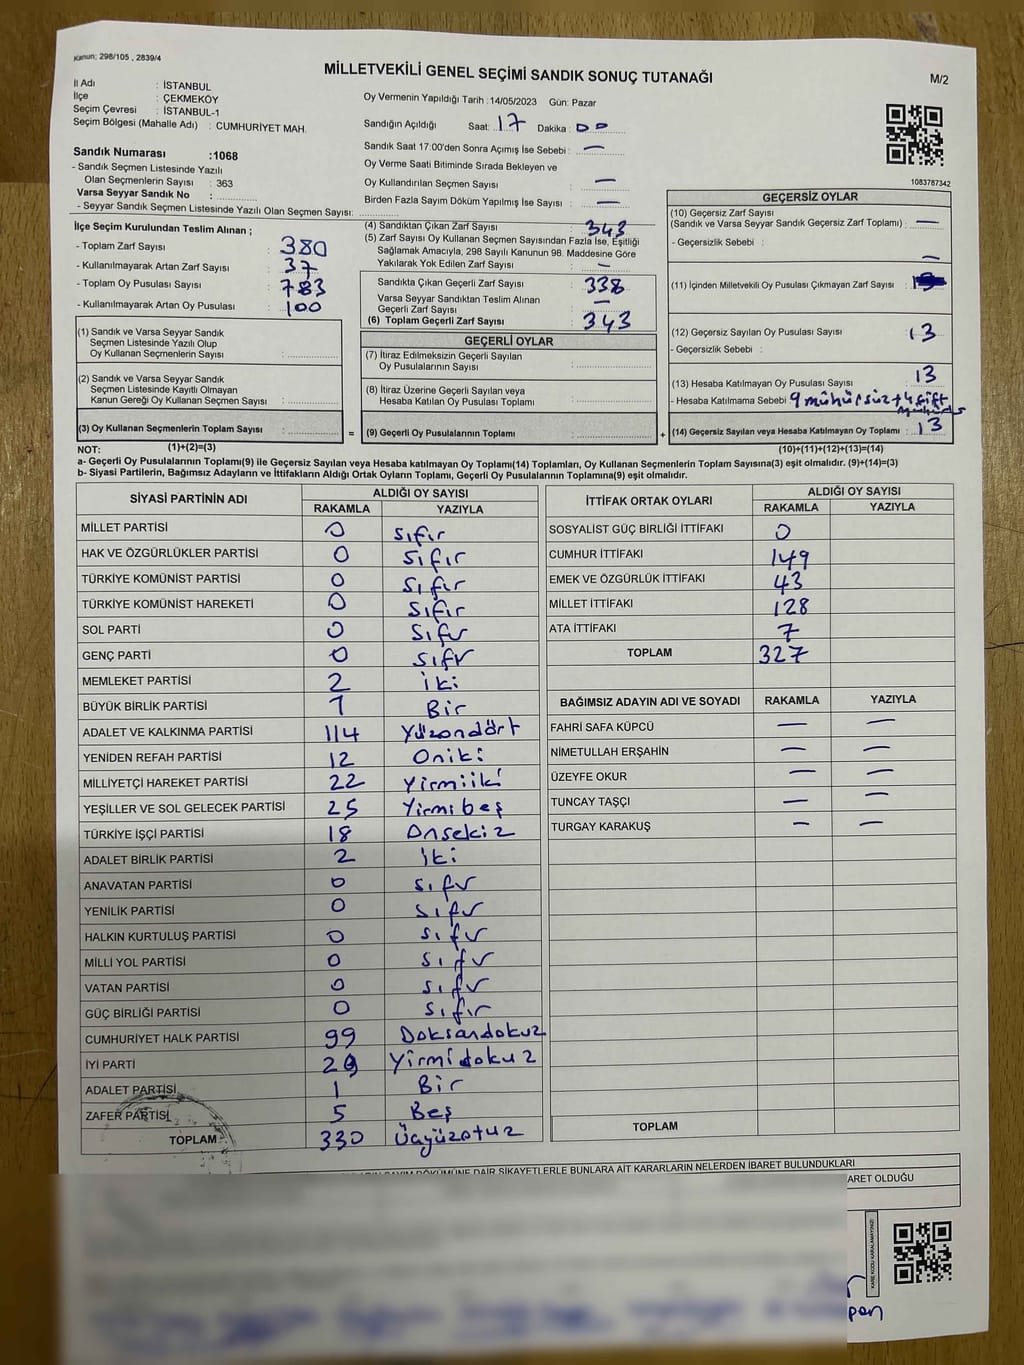 Kanun: 298/105 , 2839/4
MİLLETVEKİLİ GENEL SEÇİMİ SANDIK SONUÇ TUTANAĞI
M/2
İl Adı : İSTANBUL
İlçe : ÇEKMEKÖY
Seçim Çevresi : İSTANBUL-1
Seçim Bölgesi (Mahalle Adı) : CUMHURİYET MAH.
Oy Vermenin Yapıldığı Tarih : 14/05/2023 Gün: Pazar
Sandığın Açıldığı Saat: 17 Dakika : 00
Sandık Saat 17:00'den Sonra Açımış İse Sebebi : —
Oy Verme Saati Bitiminde Sırada Bekleyen ve
Oy Kullandırılan Seçmen Sayısı : —
Birden Fazla Sayım Döküm Yapılmış İse Sayısı : —
1083787342
Sandık Numarası :1068
- Sandık Seçmen Listesinde Yazılı
Olan Seçmenlerin Sayısı : 363
Varsa Seyyar Sandık No :
- Seyyar Sandık Seçmen Listesinde Yazılı Olan Seçmen Sayısı:
İlçe Seçim Kurulundan Teslim Alınan ;
- Toplam Zarf Sayısı : 380
- Kullanılmayarak Artan Zarf Sayısı : 37
- Toplam Oy Pusulası Sayısı : 783
- Kullanılmayarak Artan Oy Pusulası : 100
(1) Sandık ve Varsa Seyyar Sandık
Seçmen Listesinde Yazılı Olup
Oy Kullanan Seçmenlerin Sayısı :
(2) Sandık ve Varsa Seyyar Sandık
Seçmen Listesinde Kayıtlı Olmayan
Kanun Gereği Oy Kullanan Seçmen Sayısı :
(3) Oy Kullanan Seçmenlerin Toplam Sayısı :
(4) Sandıktan Çıkan Zarf Sayısı : 343
(5) Zarf Sayısı Oy Kullanan Seçmen Sayısından Fazla İse, Eşitliği
Sağlamak Amacıyla, 298 Sayılı Kanunun 98. Maddesine Göre
Yakılarak Yok Edilen Zarf Sayısı : —
Sandıkta Çıkan Geçerli Zarf Sayısı : 338
Varsa Seyyar Sandıktan Teslim Alınan
Geçerli Zarf Sayısı : —
(6) Toplam Geçerli Zarf Sayısı : 343
GEÇERLİ OYLAR
(7) İtiraz Edilmeksizin Geçerli Sayılan
Oy Pusulalarının Sayısı :
(8) İtiraz Üzerine Geçerli Sayılan veya
Hesaba Katılan Oy Pusulası Toplamı :
= (9) Geçerli Oy Pusulalarının Toplamı : +
GEÇERSİZ OYLAR
(10) Geçersiz Zarf Sayısı
(Sandık ve Varsa Seyyar Sandık Geçersiz Zarf Toplamı) : —
- Geçersizlik Sebebi : —
(11) İçinden Milletvekili Oy Pusulası Çıkmayan Zarf Sayısı :
(12) Geçersiz Sayılan Oy Pusulası Sayısı : 13
- Geçersizlik Sebebi :
(13) Hesaba Katılmayan Oy Pusulası Sayısı : 13
- Hesaba Katılmama Sebebi 9 mühürsüz + 4 çift
(14) Geçersiz Sayılan veya Hesaba Katılmayan Oy Toplamı : 13
NOT: (1)+(2)=(3) (10)+(11)+(12)+(13)=(14)
a- Geçerli Oy Pusulalarının Toplamı(9) ile Geçersiz Sayılan veya Hesaba katılmayan Oy Toplamı(14) Toplamları, Oy Kullanan Seçmenlerin Toplam Sayısına(3) eşit olmalıdır. (9)+(14)=(3)
b- Siyasi Partilerin, Bağımsız Adayların ve İttifakların Aldığı Ortak Oyların Toplamı, Geçerli Oy Pusulalarının Toplamına(9) eşit olmalıdır.
SİYASİ PARTİNİN ADI ALDIĞI OY SAYISI
RAKAMLA YAZIYLA
MİLLET PARTİSİ 0 sıfır
HAK VE ÖZGÜRLÜKLER PARTİSİ 0 sıfır
TÜRKİYE KOMÜNİST PARTİSİ 0 sıfır
TÜRKİYE KOMÜNİST HAREKETİ 0 sıfır
SOL PARTİ 0 sıfır
GENÇ PARTİ 0 sıfır
MEMLEKET PARTİSİ 2 iki
BÜYÜK BİRLİK PARTİSİ 1 Bir
ADALET VE KALKINMA PARTİSİ 114 Yüzondört
YENİDEN REFAH PARTİSİ 12 Oniki
MİLLİYETÇİ HAREKET PARTİSİ 22 Yirmiiki
YEŞİLLER VE SOL GELECEK PARTİSİ 25 Yirmibeş
TÜRKİYE İŞÇİ PARTİSİ 18 Onsekiz
ADALET BİRLİK PARTİSİ 2 iki
ANAVATAN PARTİSİ 0 sıfır
YENİLİK PARTİSİ 0 sıfır
HALKIN KURTULUŞ PARTİSİ 0 sıfır
MİLLİ YOL PARTİSİ 0 sıfır
VATAN PARTİSİ 0 sıfır
GÜÇ BİRLİĞİ PARTİSİ 0 sıfır
CUMHURİYET HALK PARTİSİ 99 Doksandokuz
İYİ PARTİ 29 Yirmidokuz
ADALET PARTİSİ 1 Bir
ZAFER PARTİSİ 5 Beş
TOPLAM 330 Üçyüzotuz
İTTİFAK ORTAK OYLARI ALDIĞI OY SAYISI
RAKAMLA YAZIYLA
SOSYALİST GÜÇ BİRLİĞİ İTTİFAKI 0
CUMHUR İTTİFAKI 149
EMEK VE ÖZGÜRLÜK İTTİFAKI 43
MİLLET İTTİFAKI 128
ATA İTTİFAKI 7
TOPLAM 327
BAĞIMSIZ ADAYIN ADI VE SOYADI RAKAMLA YAZIYLA
FAHRİ SAFA KÜPCÜ — —
NİMETULLAH ERŞAHİN — —
ÜZEYFE OKUR — —
TUNCAY TAŞÇI — —
TURGAY KARAKUŞ — —
TOPLAM
SAYIM DÖKÜMÜNE DAİR ŞİKAYETLERLE BUNLARA AİT KARARLARIN NELERDEN İBARET BULUNDUKLARI
ARET OLDUĞU
KARE KODU KARALAMAYINIZ!